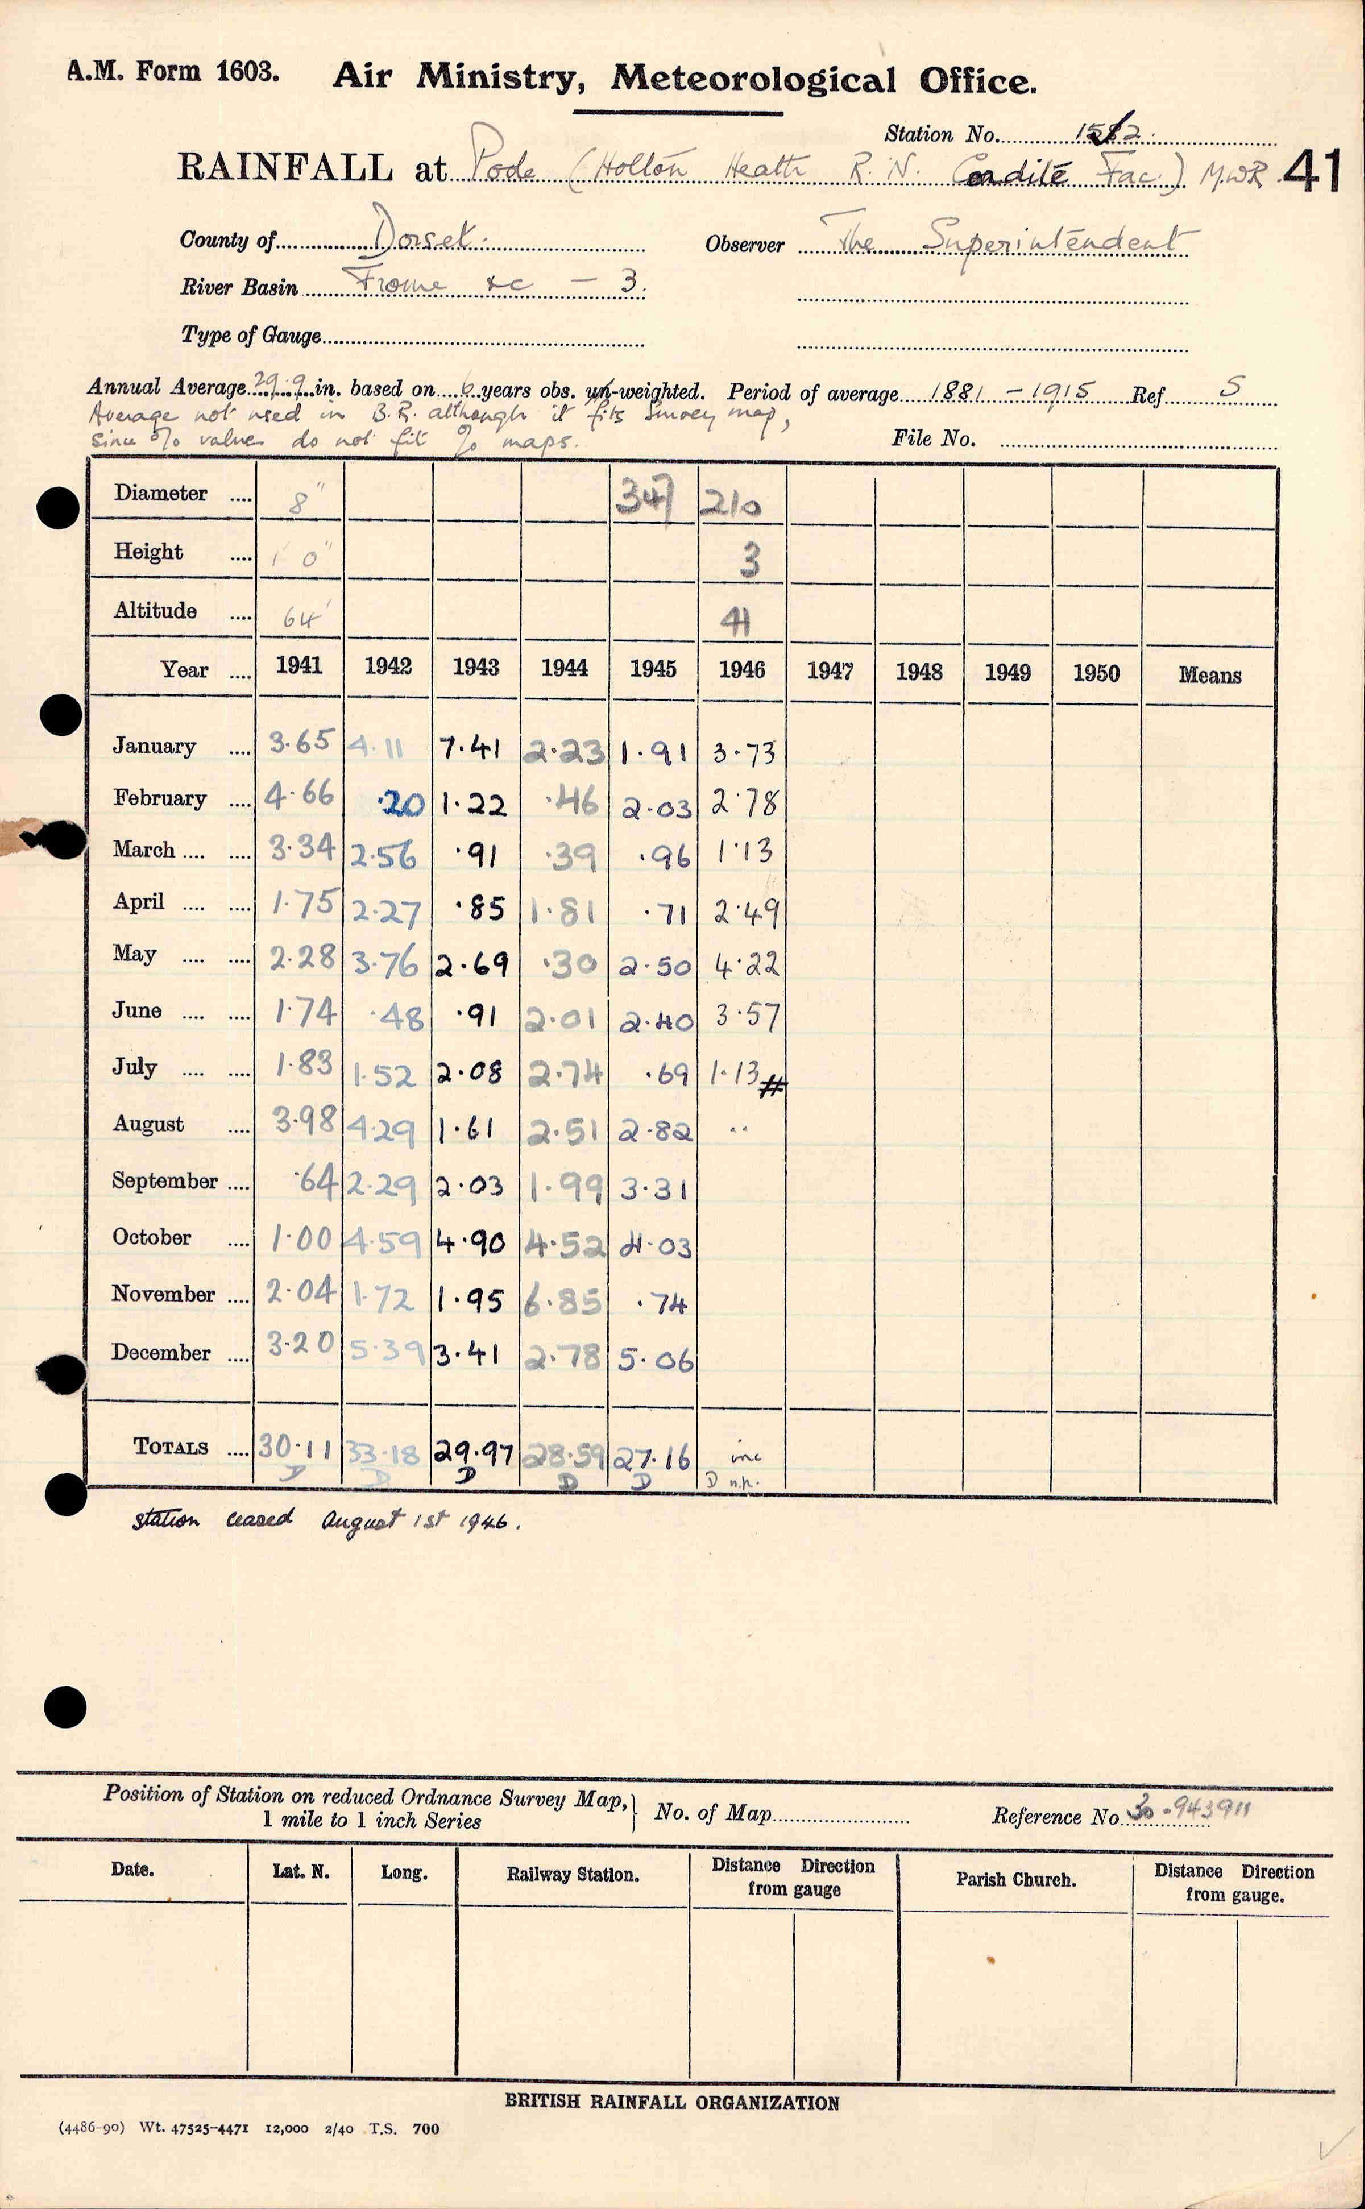 A.M. Form 1603. Air Ministry, Meteorological Office.
Station No. 1582.
RAINFALL at Poole (Holton Heath R.N. Cordite Fac.) M.W.R. 41
County of Dorset. Observer The Superintendent
River Basin Frome &c - 3.
Type of Gauge
Annual Average 29.9 in. based on 6 years obs. un-weighted. Period of average 1881 - 1915 Ref S
Average not used in B.R. although it fits Survey map,
since % values do not fit % maps.
File No.
Diameter .... 8" 347 210
Height .... 1' 0" 3
Altitude .... 64' 41
Year .... 1941 1942 1943 1944 1945 1946 1947 1948 1949 1950 Means
January .... 3.65 4.11 7.41 2.23 1.91 3.73
February .... 4.66 .20 1.22 .46 2.03 2.78
March .... .... 3.34 2.56 .91 .39 .96 1.13
April .... .... 1.75 2.27 .85 1.81 .71 2.49
May .... .... 2.28 3.76 2.69 .30 2.50 4.22
June .... .... 1.74 .48 .91 2.01 2.40 3.57
July .... .... 1.83 1.52 2.08 2.74 .69 1.13 #
August .... 3.98 4.29 1.61 2.51 2.82 ..
September .... .64 2.29 2.03 1.99 3.31
October .... 1.00 4.59 4.90 4.52 4.03
November .... 2.04 1.72 1.95 6.85 .74
December .... 3.20 5.39 3.41 2.78 5.06
TOTALS .... 30.11 33.18 29.97 28.59 27.16 inc
D D D D D D n.p.
station ceased august 1st 1946.
Position of Station on reduced Ordnance Survey Map,
1 mile to 1 inch Series
No. of Map Reference No. 30-943911
Date. Lat. N. Long. Railway Station. Distance Direction
from gauge
Parish Church. Distance Direction
from gauge.
BRITISH RAINFALL ORGANIZATION
(4486-90) Wt. 47525-4471 12,000 2/40 T.S. 700